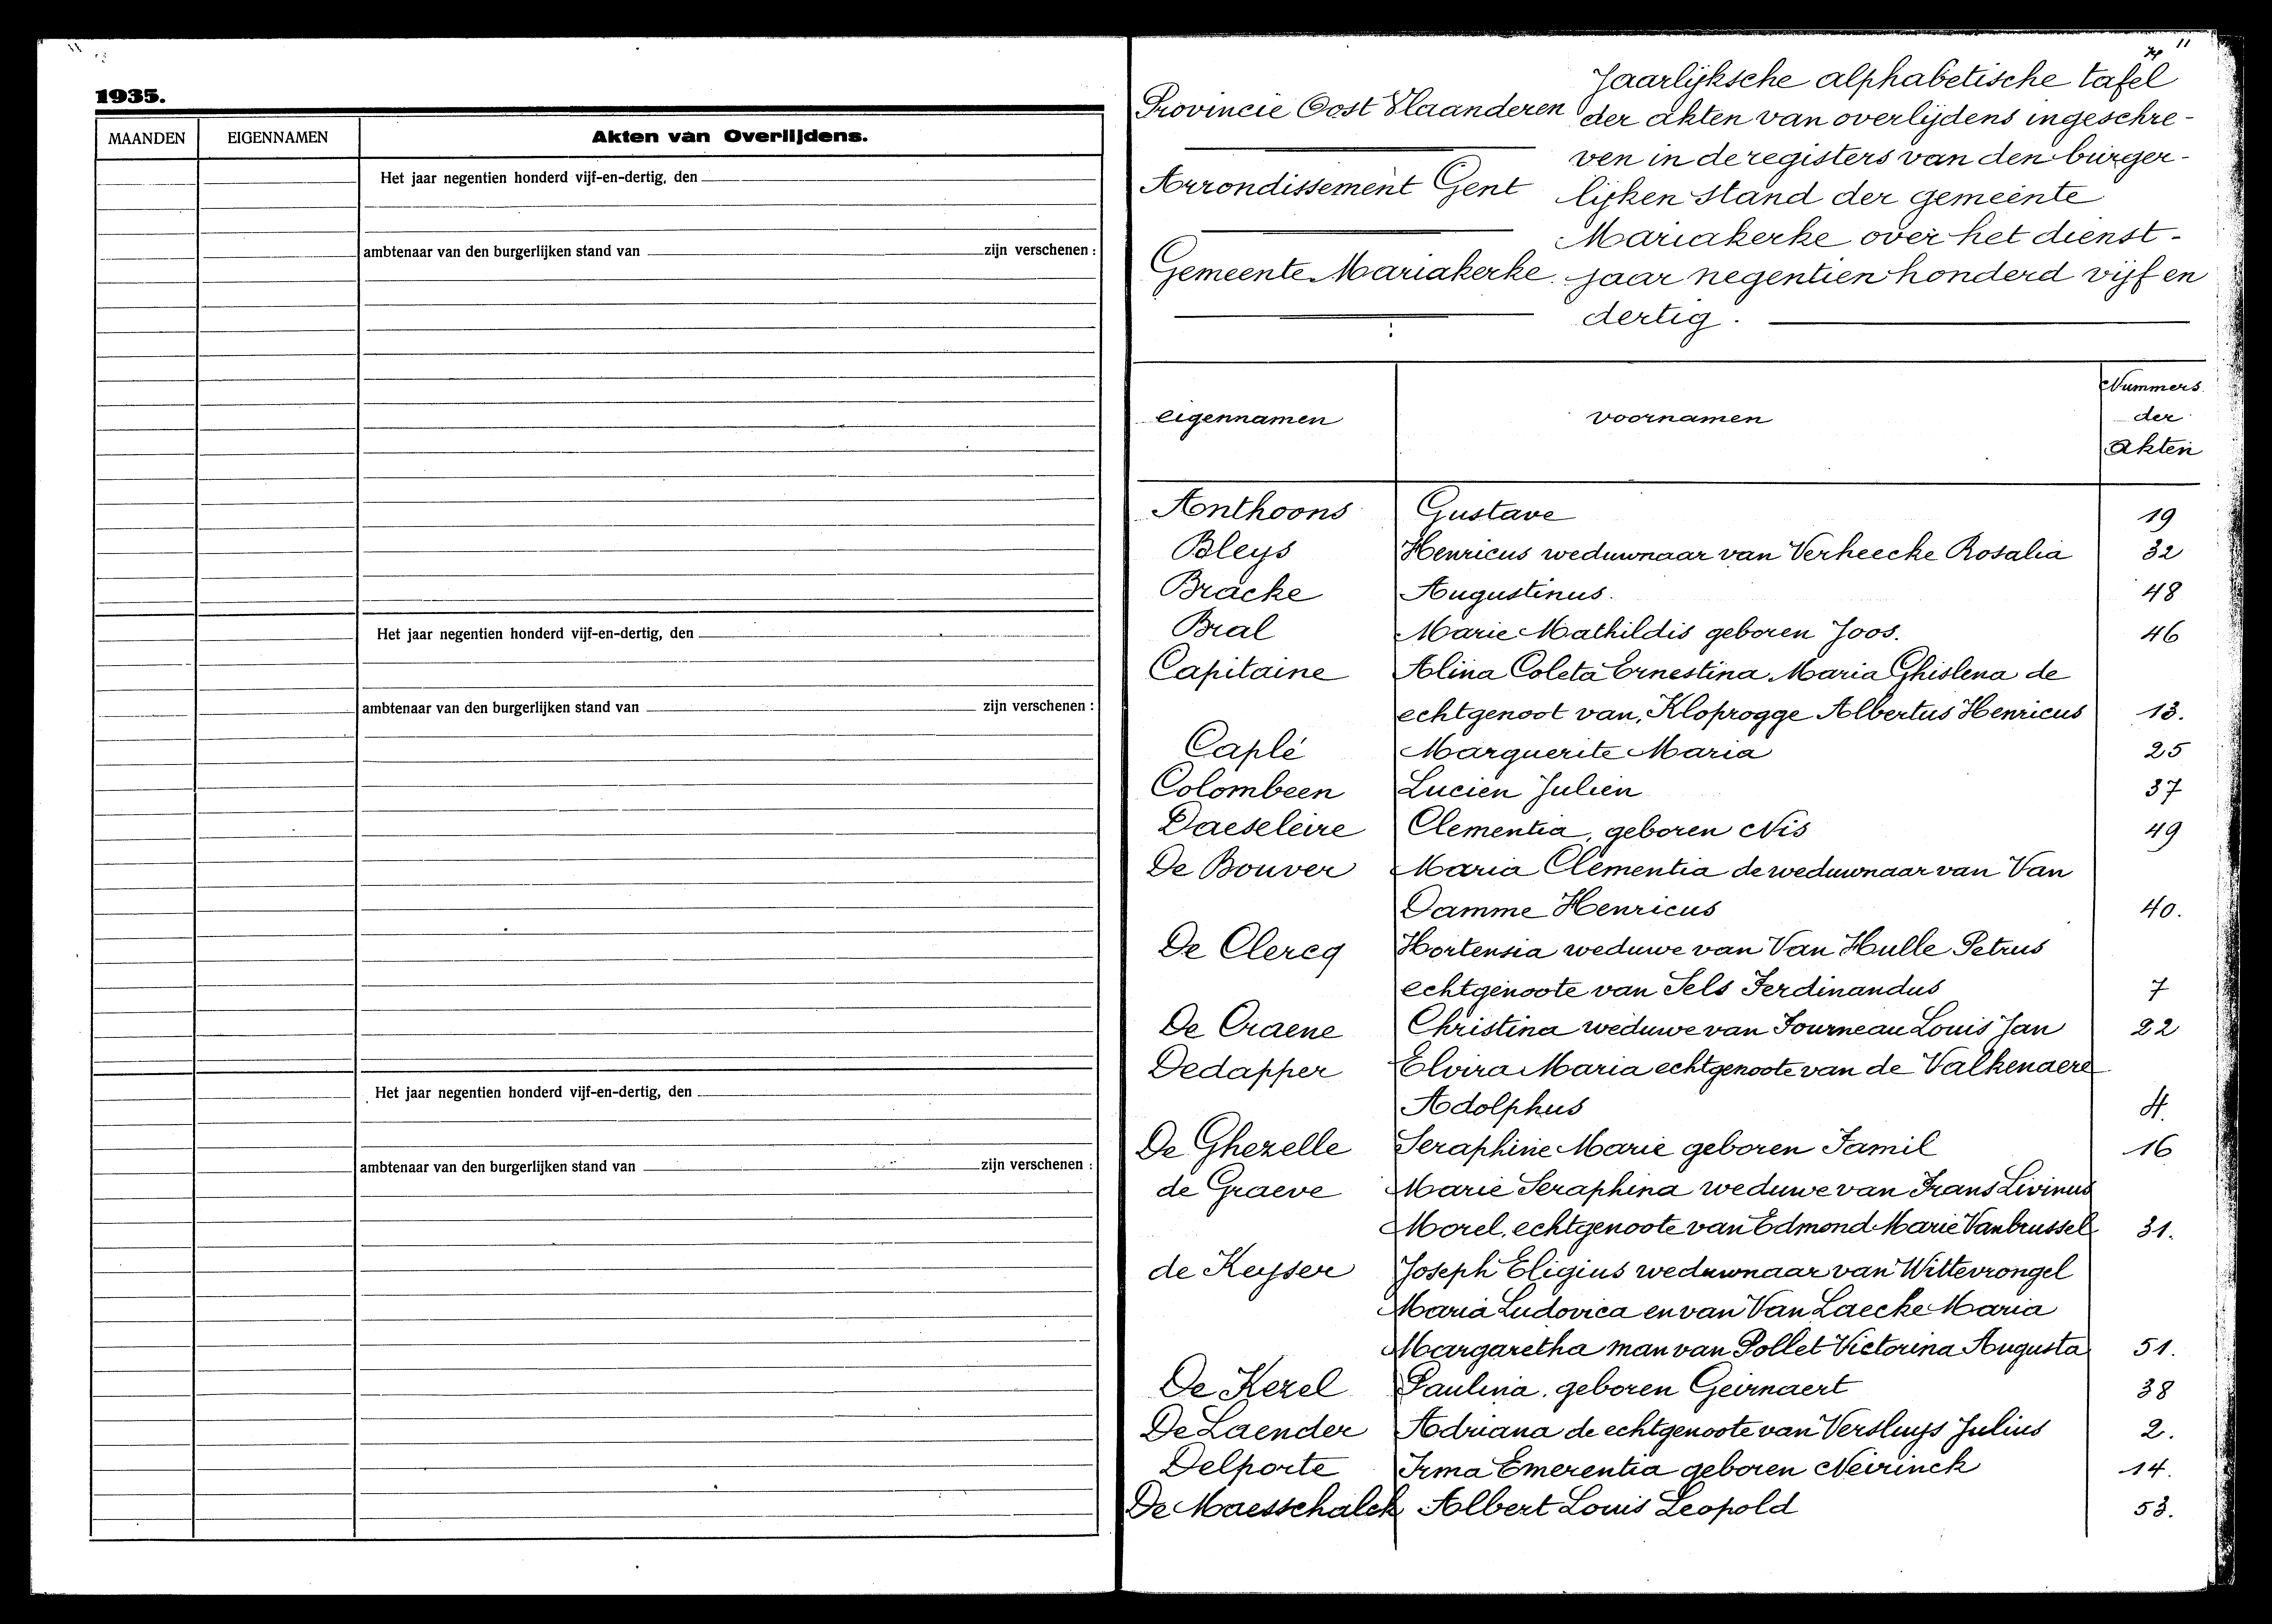 1935.
MAANDEN EIGENNAMEN Akten van Overlijdens.
Het jaar negentien honderd vijf-en-dertig, den
ambtenaar van den burgerlijken stand van zijn verschenen :
Het jaar negentien honderd vijf-en-dertig, den
ambtenaar van den burgerlijken stand van zijn verschenen :
Het jaar negentien honderd vijf-en-dertig, den
ambtenaar van den burgerlijken stand van zijn verschenen :
11
Provincie Oost Vlaanderen
Arrondissement Gent
Gemeente Mariakerke.
Jaarlijksche alphabetische tafel
der akten van overlijdens ingeschre-
ven in de registers van den burger-
lijken stand der gemeente
Mariakerke over het dienst-
jaar negentien honderd vijf en
dertig.
eigennamen voornamen Nummers
der
akten
Anthoons Gustave 19
Bleys Henricus weduwnaar van Verheecke Rosalia 32
Bracke Augustinus. 48
Bral Marie Mathildis geboren Joos. 46
Capitaine Alina Coleta Ernestina Maria Ghislena de
echtgenoot van, Kloprogge Albertus Henricus 13.
Caplé Marguerite Maria 25
Colombeen Lucien Julien 37
Daeseleire Clementia, geboren Nis 49
De Bouver Maria Clementia de weduwnaar van Van
Damme Henricus 40.
De Clercq Hortensia weduwe van Van Hulle Petrus
echtgenoote van Sels Ferdinandus 7
De Craene Christina weduwe van Fourneau Louis Jan 22
Dedapper Elvira Maria echtgenoote van de Valkenaere
Adolphus 4.
De Ghezelle Seraphine Marie geboren Famil 16
de Graeve Marie Seraphina weduwe van Frans Livinus
Morel, echtgenoote van Edmond Marie Vanbrussel 31.
de Keyser Joseph Eligius weduwnaar van Wittevrongel
Maria Ludovica en van Van Laecke Maria
Margaretha man van Pollet Victorina Augusta 51.
De Kezel Paulina, geboren Geirnaert 38
De Laender Adriana de echtgenoote van Versluys Julius 2.
Delporte Irma Emerentia geboren Neirinck 14.
De Maesschalck Albert Louis Leopold 53.